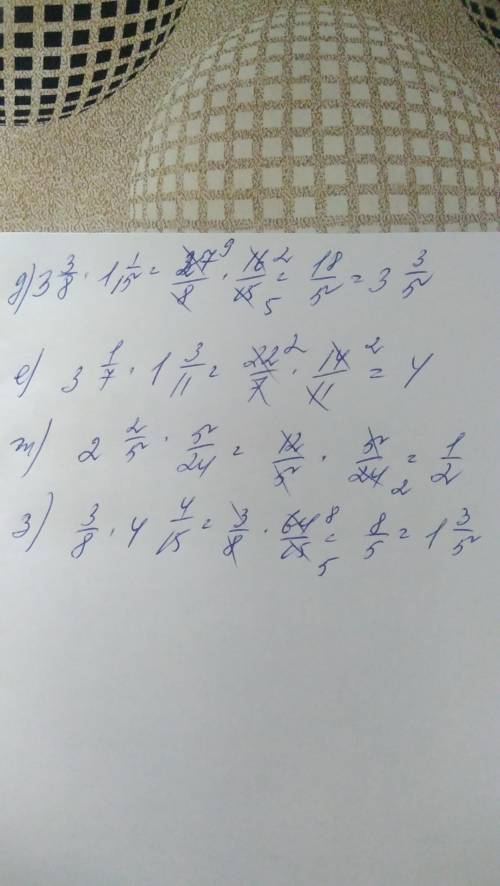 д) 3 3/8 · 1 1/15 = 27/8 9 · 16/15 2 5 = 18/5 = 3 3/5
е) 3 1/7 · 1 3/11 = 22/7 2 · 14/11 2 = 4
ж) 2 2/5 · 5/24 = 12/5 · 5/24 2 = 1/2
з) 3/8 · 4 4/15 = 3/8 · 64/15 8 5 = 8/5 = 1 3/5